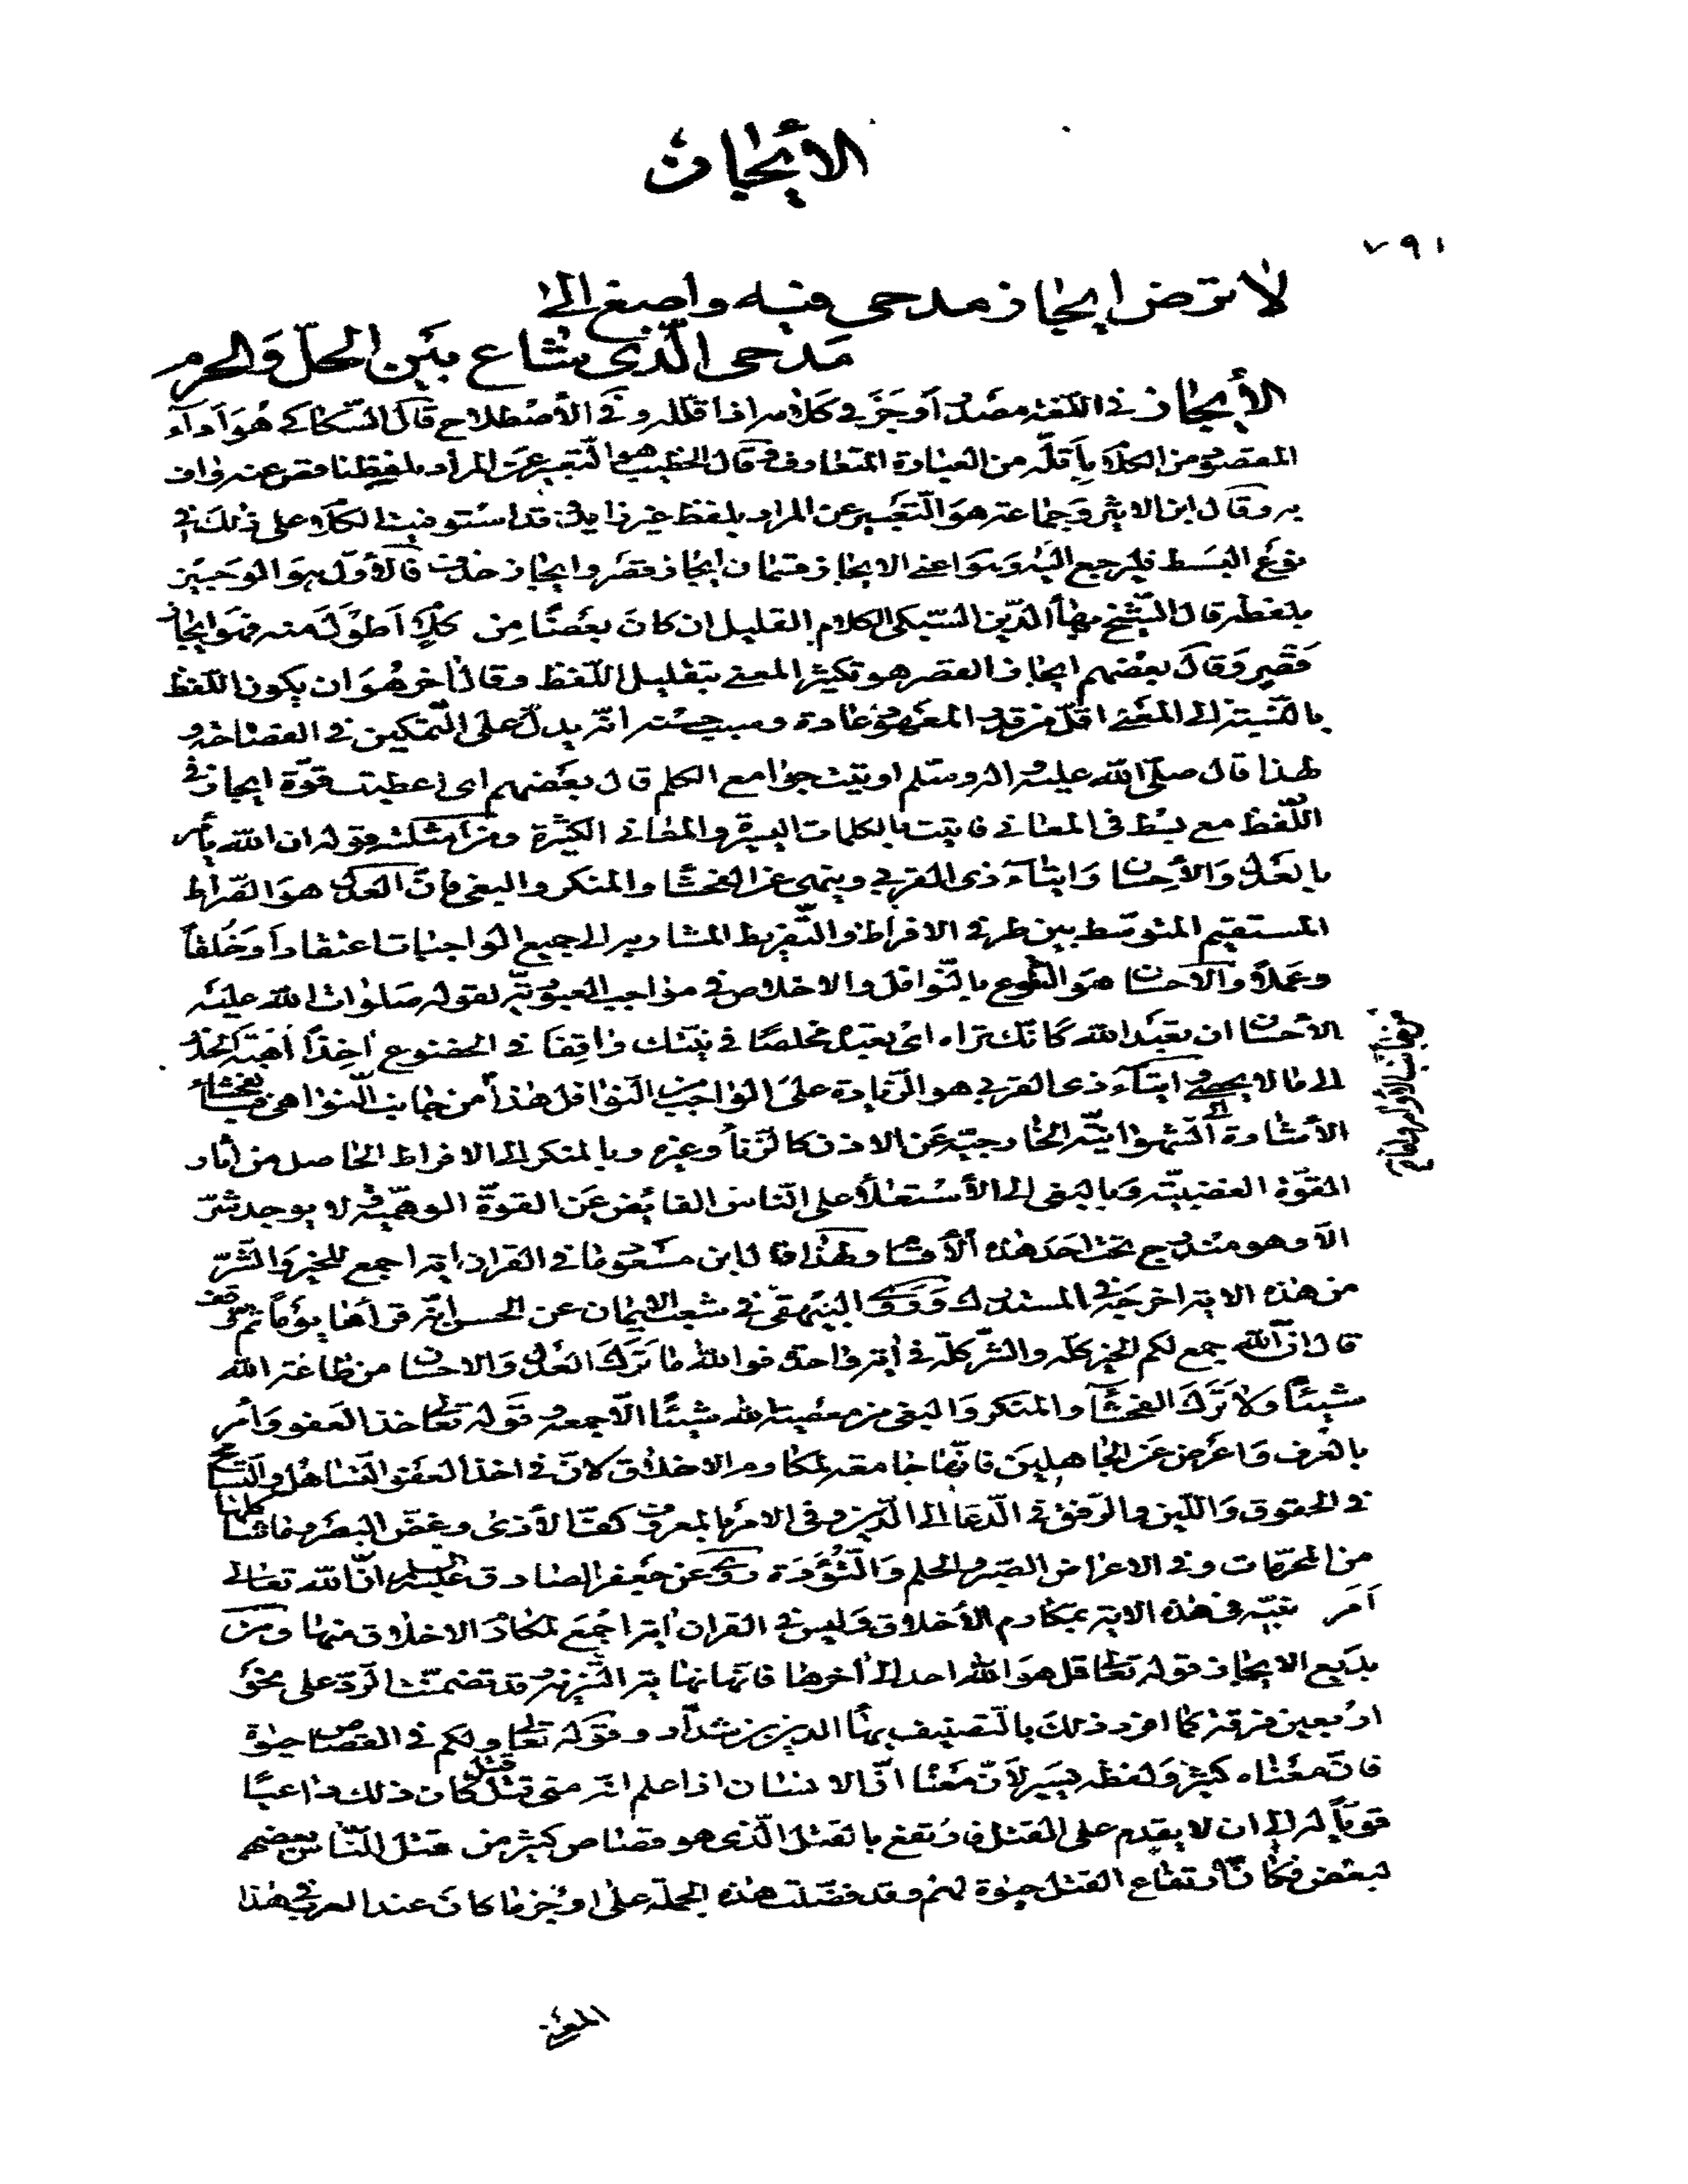 الأيجاز
٧٩١
لا ترض ايجاز مدحى فيه واصغ الى
مدحى الّذى شاع بين الحلّ والحرم
الأيجاز في اللّغة مصدر أوجز في كلامه اذا قلّله وفي الأصطلاح قال السّكاكى هو أدآء
المقصود من الكلام بأقلّ من العبارة المتعارف وقال الخطيب هو التّعبير عن المراد بلفظ ناقص عنه واف
به وقال ابن الاثير وجماعة هو التّعبير عن المراد بلفظ غير زايد وقد استوفيت الكلام على ذلك في
نوع البسط فليرجع اليه وهو اعنى الايجاز قسمان ايجاز قصر وايجاز حذف فالأوّل هو الوجيز
بلفظه قال الشّيخ بهاء الدّين السّبكى الكلام القليل ان كان بعضًا من كلام اطول منه فهو ايجاز
قصر وقال بعضهم ايجاز القصر هو تكثير المعنى بتقليل اللّفظ وقال اخر هو ان يكون اللّفظ
بالنّسبة الى المعنى اقلّ من قدر المعهود عادة وسبب حسنه انّه يدلّ على التّمكين في الفصاحة و
لهذا قال صلّى الله عليه واله وسلّم اوتيت جوامع الكلم قال بعضهم اى اعطيت قوّة ايجاز في
اللّفظ مع بسط في المعانى فاتيت بالكلمات اليسيرة والمعانى الكثيرة ومن امثلته قوله ان الله يأمر
بالعدل والأحسان وايتآء ذى القربى وينهى عن الفحشآ والمنكر والبغى فانّ العدل هو الصّراط
المستقيم المتوسّط بين طرفى الافراط والتّفريط المشار به الى جميع الواجبات اعتقادا وخلقاً
وعملا والاحسان هو التّطوع بالنّوافل والاخلاص في مواجب العبوديّة لقوله صلوات الله عليه
الأحسان ان تعبد الله كانّك تراه اى تعبده مخلصًا في نيّتك واقفا في الخضوع اخذًا اهبة الحذر
الى ما لا يحصى وايتآء ذى القربى هو الزّيادة على الواجب من النّوافل هذا من جانب النّواهى فبالفحشاء
الأشارة الى الشّهوانيّة الخارجيّة عن الاذن كالزّنا وغيره وبالمنكر الى الافراط الحاصل من أثار
القوّة الغضبيّة وبالبغى الى الأستعلاء على النّاس الفايض عن القوّة الوهميّة فلا يوجد شرّ
الّا وهو مندرج تحت احد هذه الأقسام ولهذا قال ابن مسعود ما في القران اية اجمع للخير والشّرّ
من هذه الاية اخرجه في المستدرك وروى البيهقى في شعب الايمان عن الحسن انّه قرأها يومًا ثم وقف
قال انّ الله جمع لكم الخير كلّه والشّرّ كلّه في أية واحدة فوالله ما ترك العدل والاحسان من طاعة الله
شيئًا ولا ترك الفحشآ والمنكر والبغى من معصية الله شيئًا الّا جمعه وقوله تعالى خذ العفو وأمر
بالعرف واعرض عن الجاهلين فانّها جامعة لمكارم الاخلاق لانّ في اخذ العفو التّساهل والتّسامح
في الحقوق واللّين والرّفق في الدّعا الى الدّين وفى الامر بالمعروف كفّ الأذى وغضّ البصر وما شاكلها
من المحرّمات وفى الاعراض الصّبر والحلم والتّؤدة وروى عن جعفر الصّادق عليه السلم انّ الله تعالى
أمر نبيّه في هذه الاية بمكارم الأخلاق وليس في القران اية اجمع لمكارم الاخلاق منها ومن
بديع الايجاز قوله تعالى قل هو الله احد الى أخرها فانّها نهاية التّنزيه وقد تضمنت الرّد على نحو
اربعين فرقة كما افرد ذلك بالتّصنيف بهاء الدين بن شدّاد وقوله تعالى ولكم في القصاص حيوة
فانّ معناه كثير ولفظه يسير لأنّ معناه انّ الانسان اذا علم انّه متى قتل قتل كان ذلك داعيًا
قويّاً له الى ان لا يقدم على القتل فارتفع بالقتل الّذى هو قصاص كثير من قتل النّاس بعضهم
لبعض فكان ارتفاع القتل حيوة لهم وقد فضّلت هذه الجملة على اوجز ما كان عند العرب في هذا
المعنى